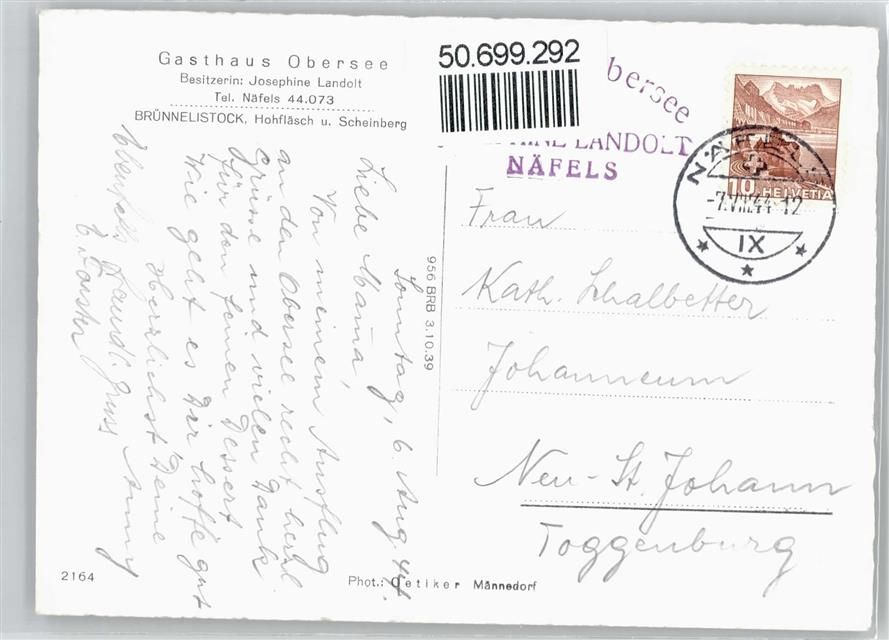 Gasthaus Obersee
Besitzerin: Josephine Landolt
Tel. Näfels 44.073
BRÜNNELISTOCK, Hohfläsch u. Scheinberg
50.699.292
bersee
INE LANDOLT
NÄFELS
10 HELVETIA
NÄFELS
-7.VIII.44-12
IX
956 BRB 3.10.39
Sonntag, 6. Aug. 44.
Liebe Mama,
Von meinem Ausflug
an den Obersee recht herzl.
Grüsse und vielen Dank
für den feinen Dessert
Wie geht es Dir hoffe gut
Herzlichst Deine
Anny
Ebenfalls freundl. Gruss
Frau
Kath. Schalbetter
Johanneum
Neu-St. Johann
Toggenburg
2164
Phot.: Oetiker Männedorf